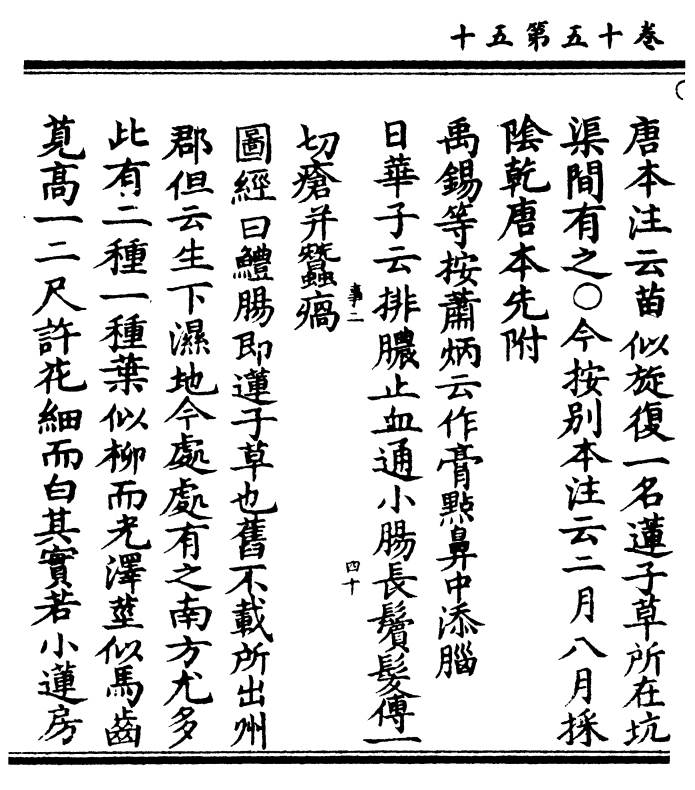 卷十五第五十
唐本注云苗似旋復一名蓮子草所在坑
渠間有之〇今按別本注云二月八月採
陰乾唐本先附
禹錫等按蕭炳云作膏點鼻中添腦
日華子云排膿止血通小腸長鬚髮傅一
切瘡并蠶瘑
事二
四十
圖經曰鱧腸即蓮子草也舊不載所出州
郡但云生下濕地今處處有之南方尤多
此有二種一種葉似柳而光澤莖似馬齒
莧高一二尺許花細而白其實若小蓮房